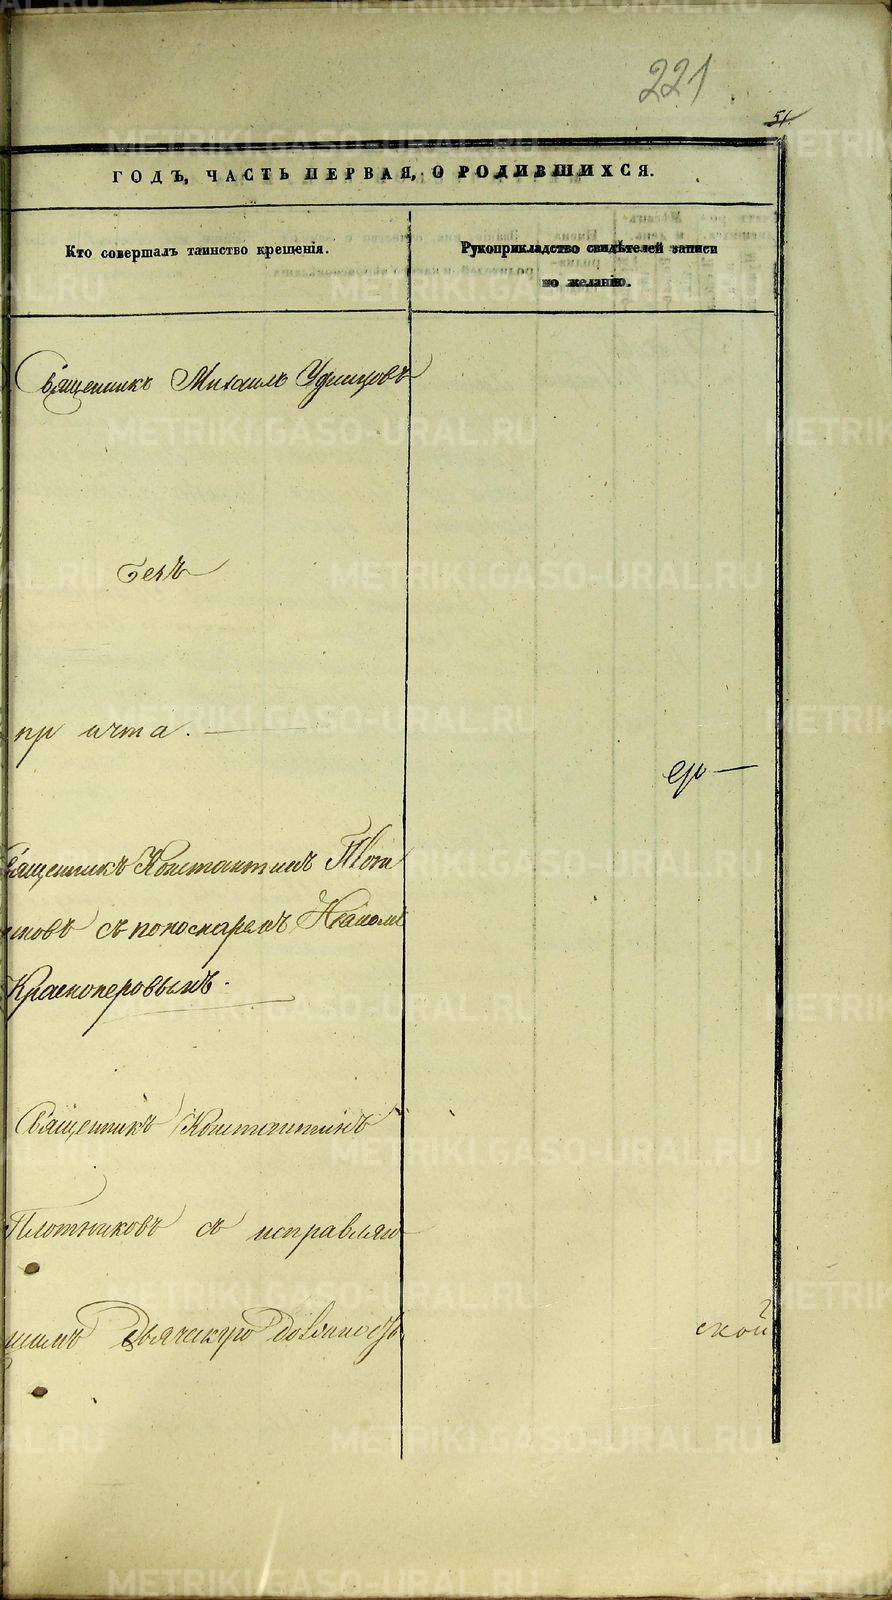 221
51
ГОДЪ, ЧАСТЬ ПЕРВАЯ, О РОДИВШИХСЯ.
Кто совершалъ таинство крещенія.
Рукоприкладство свидѣтелей записи
по желанію.
Священникъ Михаилъ Удинцовъ
безъ
причта.
Священникъ Константинъ Плот
никовъ съ пономаремъ
Красноперовымъ.
Священникъ Константинъ
Плотниковъ съ исправляю
щимъ дьяческую должность
ской
METRIKI.GASO-URAL.RU